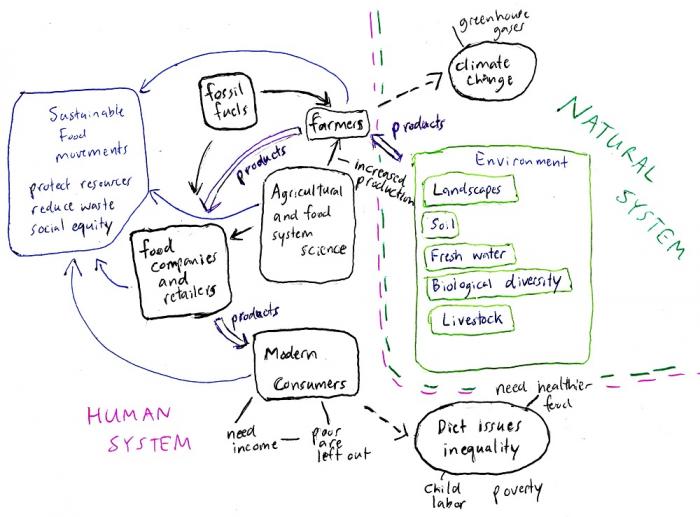 greenhouse
gases
climate
change
fossil
fuels
farmers
products
Sustainable
Food
movements
protect resources
reduce waste
social equity
products
increased
production
Agricultural
and food
system
science
food
companies
and
retailers
products
Modern
Consumers
need
income
poor
are
left out
HUMAN
SYSTEM
NATURAL
SYSTEM
Environment
Landscapes
Soil
Fresh water
Biological diversity
Livestock
need healthier
food
Diet issues
inequality
child
labor
poverty